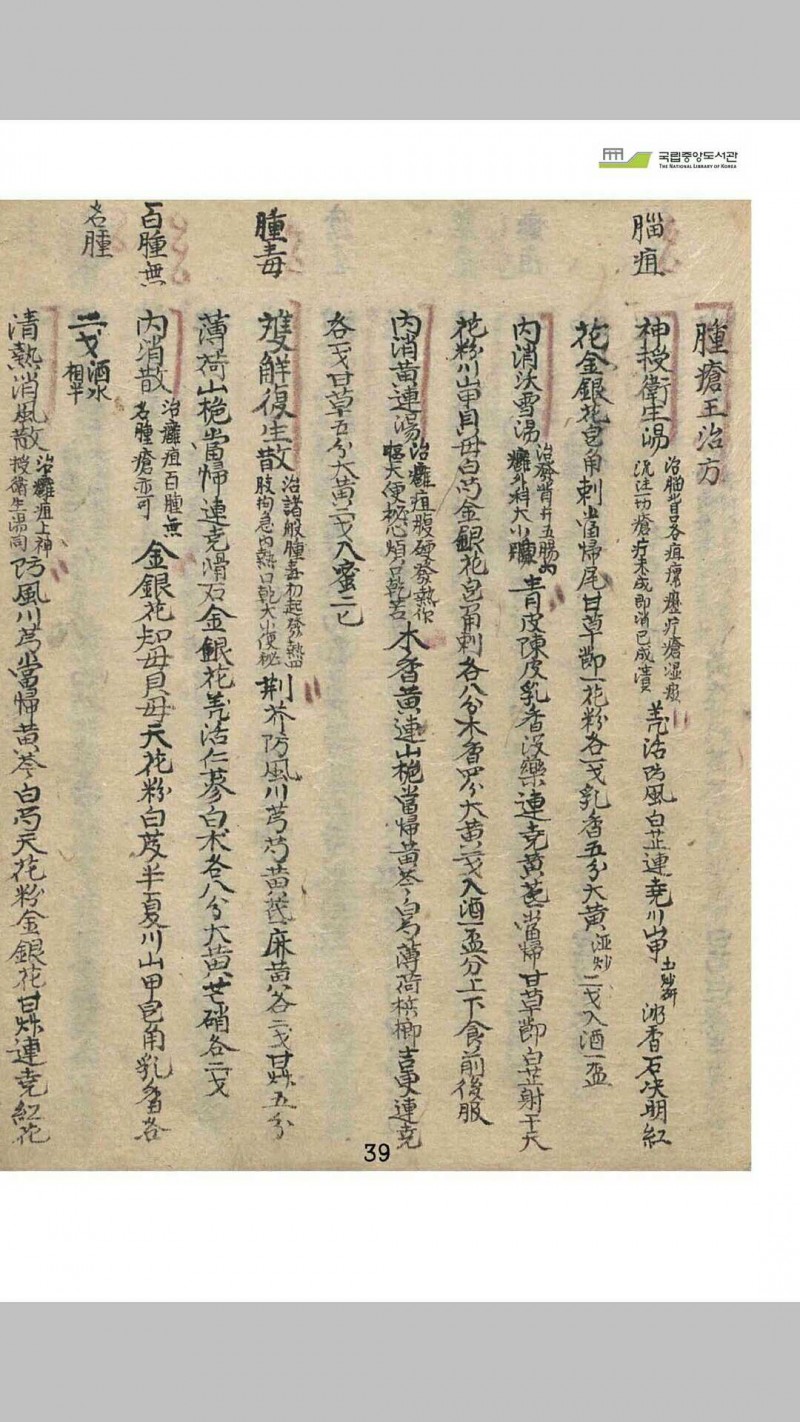 국립중앙도서관
THE NATIONAL LIBRARY OF KOREA
腫瘡主治方
腦疽
神授衛生湯 治腦背口各疽瘰癧疔瘡湿痰
流注一切瘡疔未成即消已成潰 羌活防風白芷連壳川山甲 土炒研 沉香石决明紅
花金銀花皀角刺當歸尾甘草節花粉各一戈乳香五分大黃 湿炒 二戈入酒一盃
内消沃雪湯 治發背并五腸内
癰外科大小腫 靑皮陳皮乳香沒藥連壳黃芪當歸甘草節白芷射干天
花粉川山甲貝母白芍金銀花皀角刺各八分木香四分大黃二戈入酒一盃分上下食前後服
内消黃連湯 治癰疽腹硬發熱作
嘔大便秘心煩舌乾苦 木香黃連山梔當歸黃芩白芍薄荷梹榔吉更連壳
各一戈甘草五分大黃二戈入蜜二匕
腫毒
雙解復生散 治諸般腫毒初起發熱四
肢拘急内熱口乾大小便秘 荆芥防風川芎芍黃芪麻黃各二戈甘炒五分
薄荷山梔當歸連壳滑石金銀花羌活仁蔘白朮各八分大黃芒硝各二戈
百腫無
名腫
内消散 治癰疽百腫無
名腫瘡亦可 金銀花知母貝母天花粉白芨半夏川山甲皀角乳香各
二戈 酒水
相半
清熱消風散 治癰疽上神
授衛生湯同 防風川芎當歸黃芩白芍天花粉金銀花甘炒連壳紅花
39